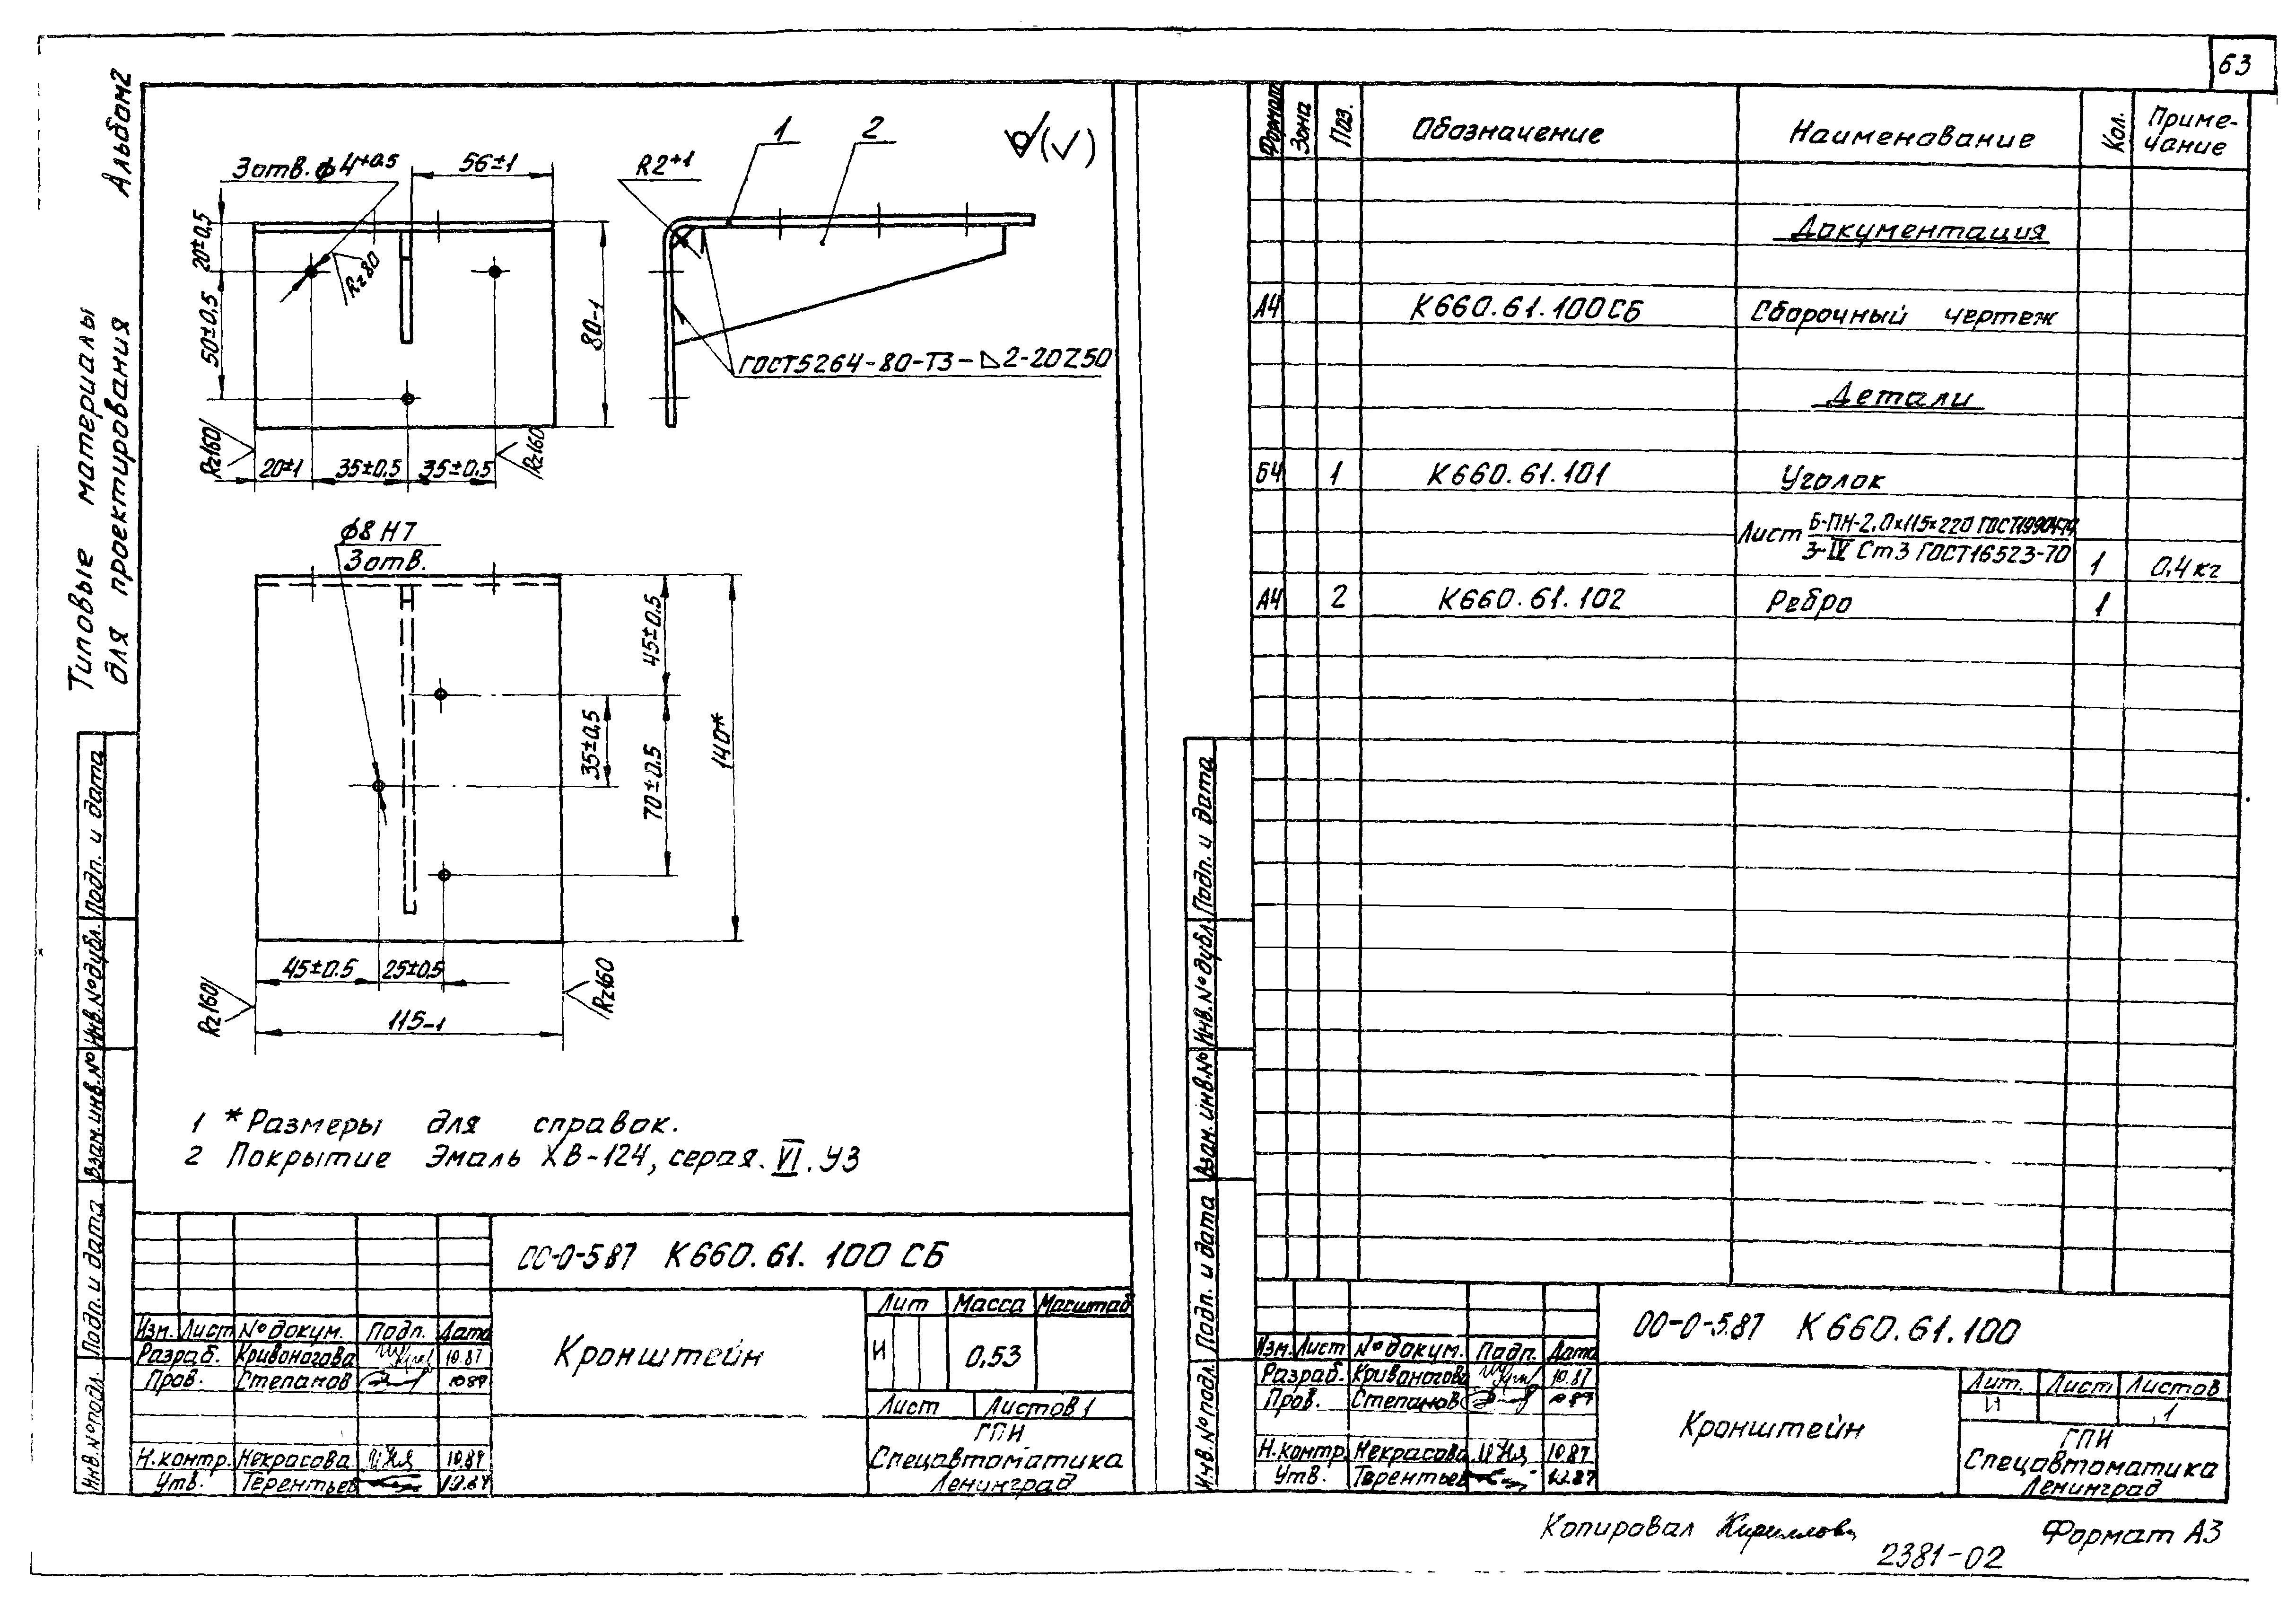 63
Альбом 2
Типовые материалы
для проектирования
3 отв. ϕ4+0.5
56±1
R2+1
1
2
20±0.5
50±0.5
Rz80
80-1
ГОСТ5264-80-Т3-◺2-20Z50
Rz160
20±1
35±0.5
35±0.5
Rz160
ϕ8 H7
3 отв.
45±0.5
35±0.5
70±0.5
140*
45±0.5
25±0.5
Rz160
Rz160
115-1
1 *Размеры для справок.
2 Покрытие Эмаль ХВ-124, серая. VI. У3
ОО-0-5.87 К660.61.100 СБ
Изм. Лист № докум. Подп. Дата
Разраб. Кривоногова 10.87
Пров. Степанов 10.87
Н.контр. Некрасова 10.87
Утв. Терентьев
Кронштейн
Лит Масса Масштаб
И 0,53
Лист Листов 1
ГПИ
Спецавтоматика
Ленинград
Подп. и дата
Инв.№ дубл.
Взам.инв.№
Подп. и дата
Инв.№ подл.
Формат Зона Поз. Обозначение Наименование Кол. Приме-
чание
Документация
А4 К660.61.100СБ Сборочный чертеж
Детали
Б4 1 К660.61.101 Уголок
Лист Б-ПН-2,0х115х220 ГОСТ19904-74
3-IV Ст3 ГОСТ16523-70 1 0,4 кг
А4 2 К660.61.102 Ребро 1
Подп. и дата
Инв.№ дубл.
Взам.инв.№
Подп. и дата
Инв.№ подл.
ОО-0-5.87 К660.61.100
Изм. Лист № докум. Подп. Дата
Разраб. Кривоногова 10.87
Пров. Степанов 10.87
Н.контр. Некрасова 10.87
Утв. Терентьев
Кронштейн
Лит. Лист Листов
И 1
ГПИ
Спецавтоматика
Ленинград
Копировал Кириллова
Формат А3
2381-02